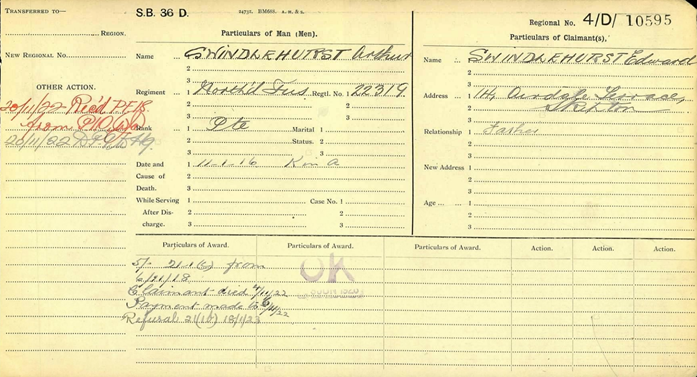 TRANSFERRED TO
REGION.
NEW REGIONAL No.
OTHER ACTION.
20/11/22 Rec'd P.F.18.
from
20/11/22
S.B. 36 D.
Particulars of Man (Men).
Name 1 SWINDLEHURST Arthur
2
3
Regiment 1 North'd Fus Regtl. No. 1 22319.
2 2
3 3
Rank 1 Pte Marital 1
2 Status. 2
3 3
Date and 1 11-1-16 K in A
Cause of 2
Death. 3
While Serving 1 Case No. 1
After Dis- 2 2
charge. 3 3
Regional No. 4/D/ 10595
Particulars of Claimant(s).
Name 1 SWINDLEHURST Edward
2
3
Address 1 14, Airedale Terrace,
2 Skipton
3
Relationship 1 Father
2
3
New Address 1
2
3
Age 1
2
3
Particulars of Award. Particulars of Award. Particulars of Award. Action. Action. Action.
5/- from
18
Claimant died /11/22
Payment made to /11/22
Refusal 21(10) 18/1/23
OK